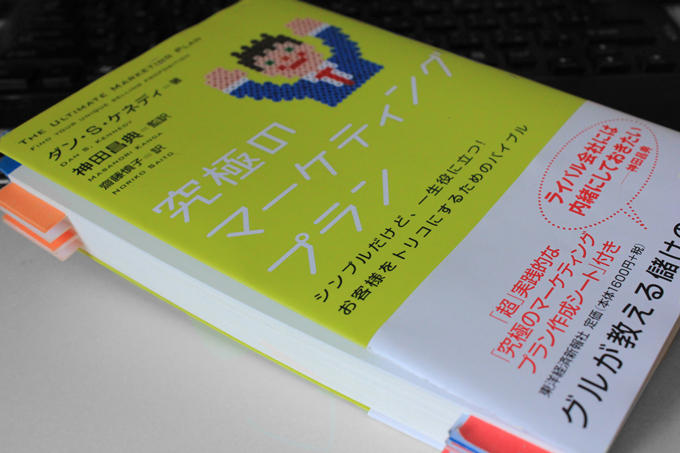 THE ULTIMATE MARKETING PLAN
FIND YOUR UNIQUE SELLING PROPOSITION
ダン・S・ケネディ=著
DAN S. KENNEDY
神田昌典=監訳
MASANORI KANDA
齋藤慎子=訳
NORIKO SAITO
究極の
マーケティング
プラン
シンプルだけど、一生役に立つ!
お客様をトリコにするためのバイブル
ライバル会社には
内緒にしておきたい
神田昌典
「超」実践的な
「究極のマーケティング
プラン作成シート」付き
東洋経済新報社 定価(本体1600円+税)
グルが教える儲けの